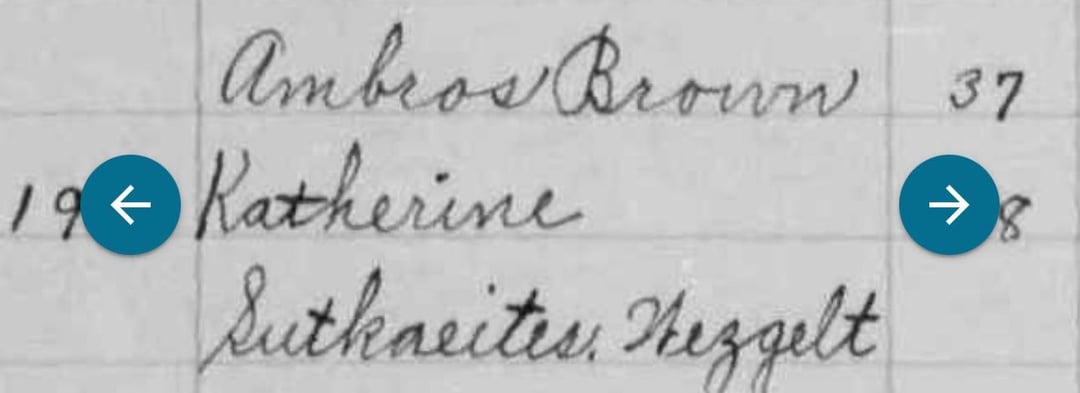 Ambros Brown 37
19 Katherine 8
Sutkaeites, Wezgelt